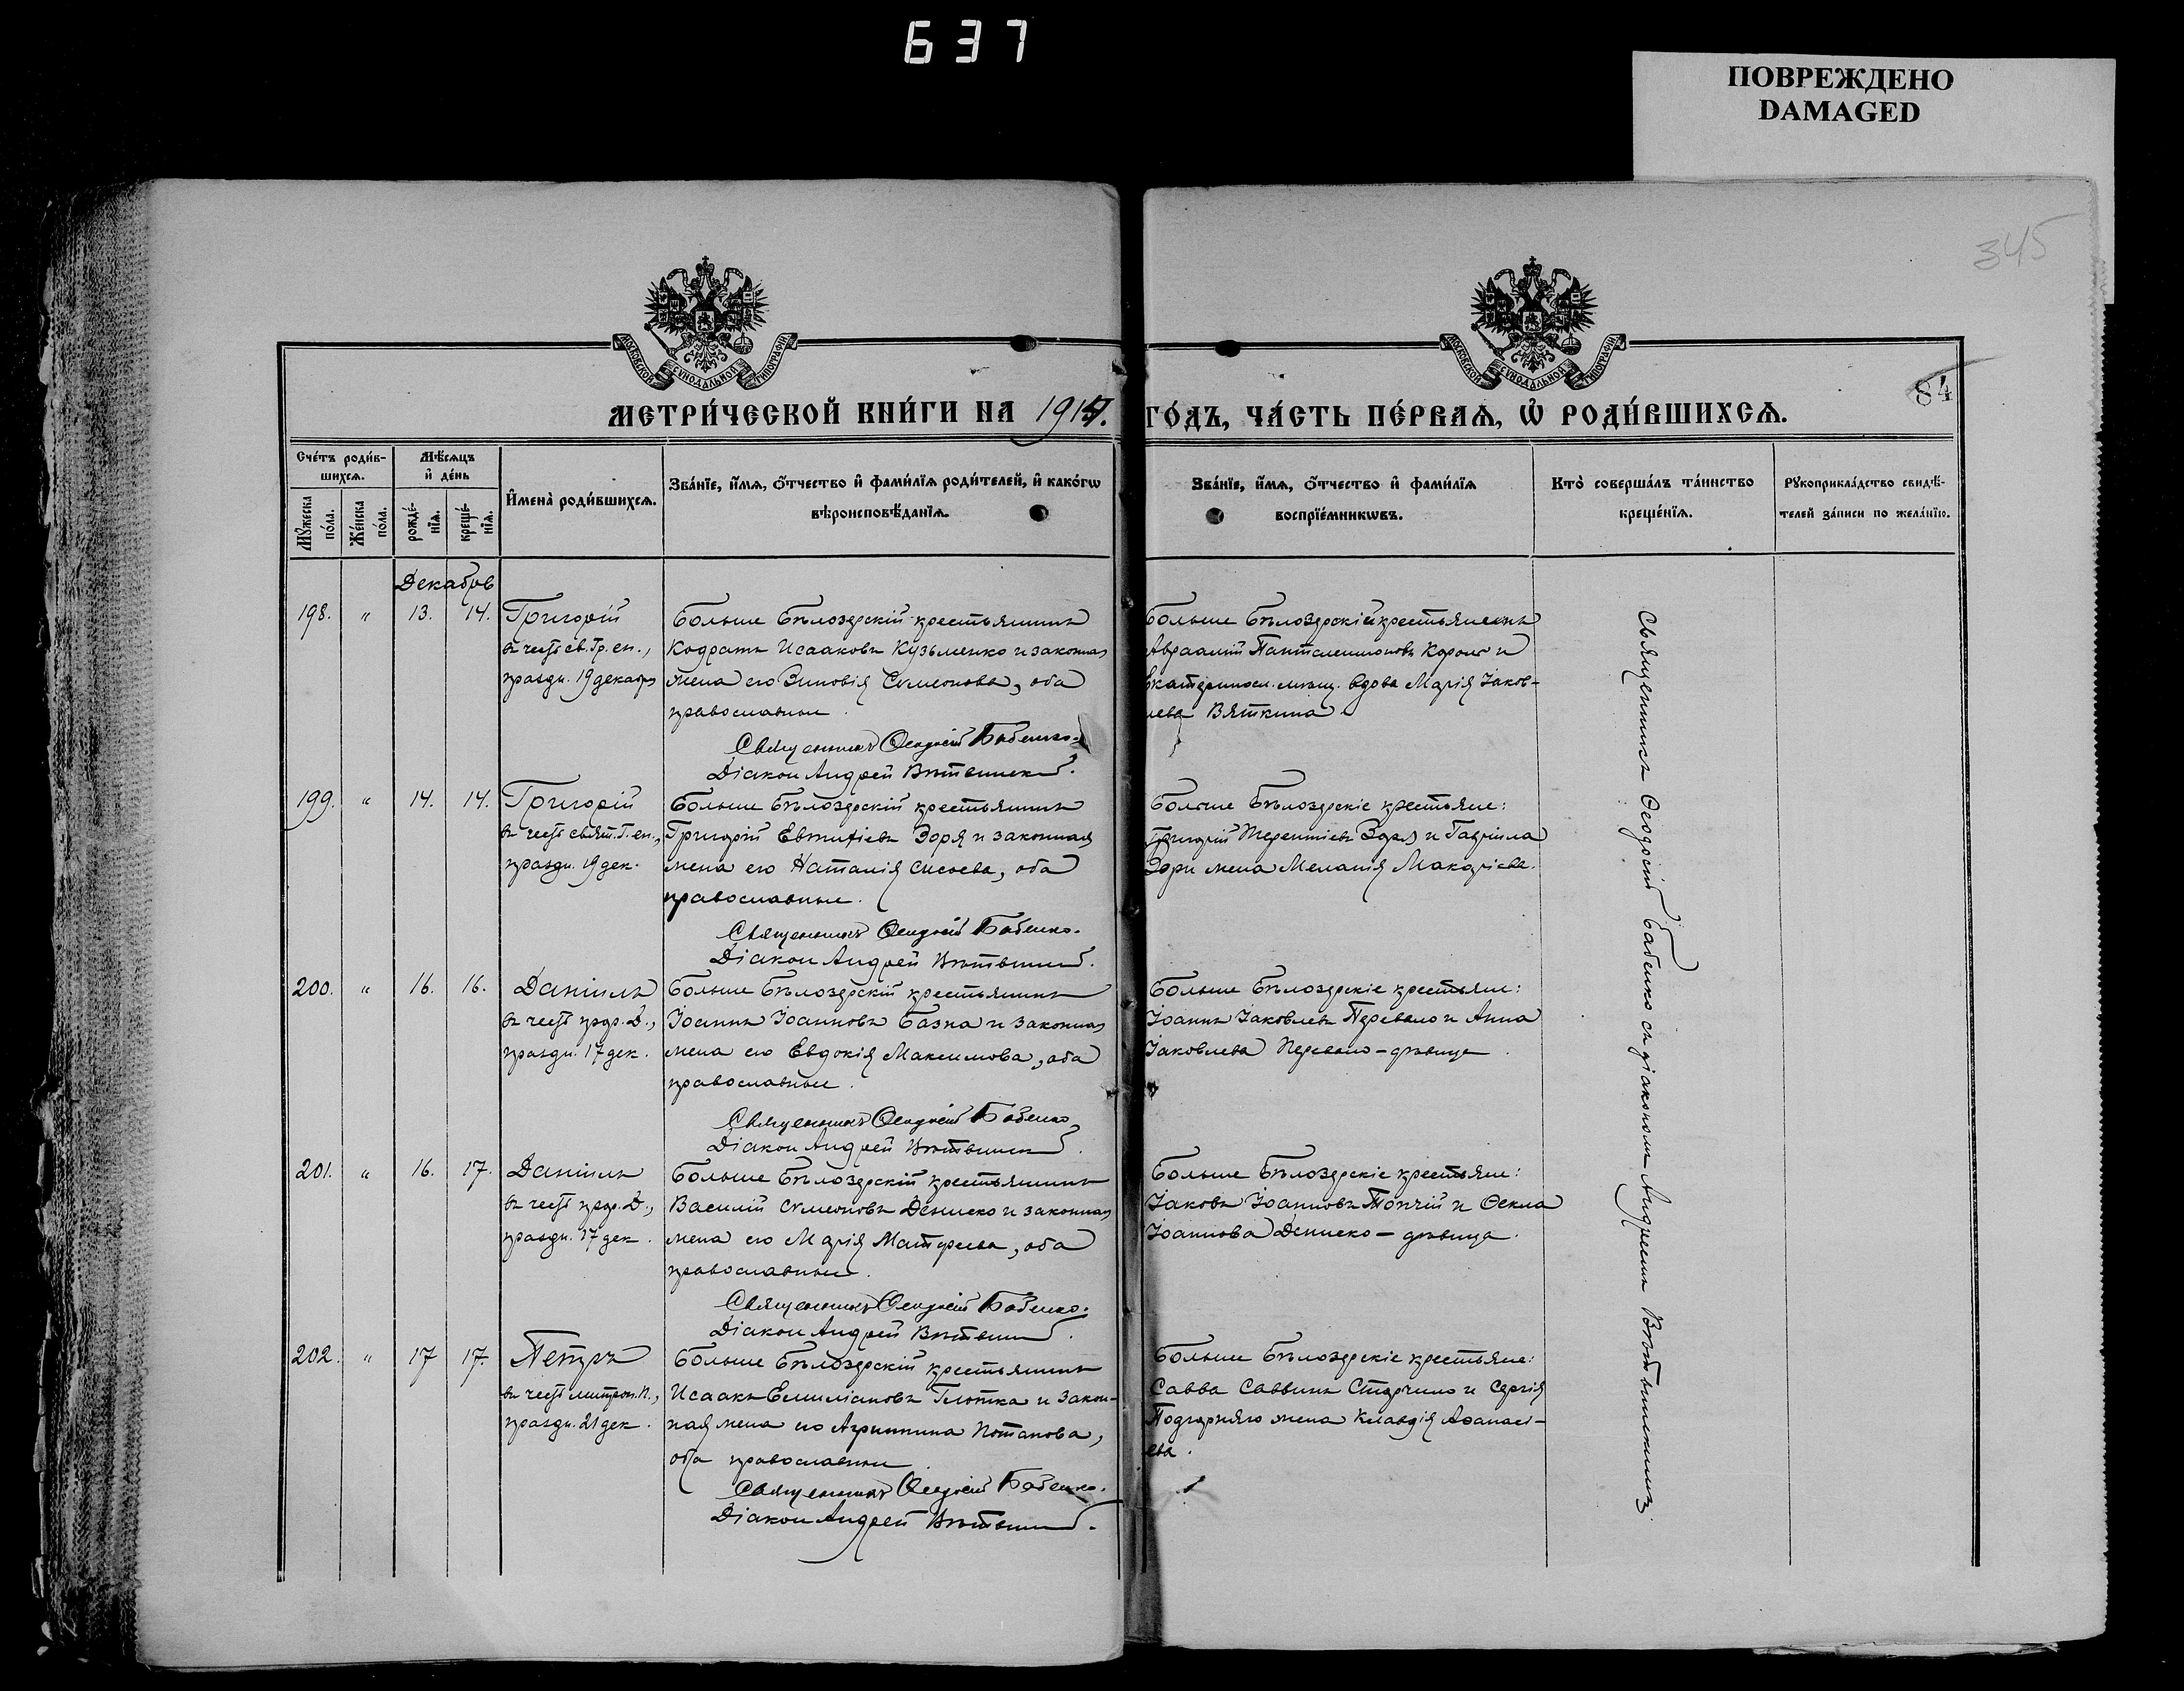 637
ПОВРЕЖДЕНО
DAMAGED
345
84
МОСКОВСКОЙ СѴНОДАЛЬНОЙ ТИПОГРАФІИ
МОСКОВСКОЙ СѴНОДАЛЬНОЙ ТИПОГРАФІИ
МЕТРИ́ЧЕСКОЙ КНИ́ГИ НА 1914. ГО́ДЪ, ЧА́СТЬ ПЕ́РВАѦ, Ѡ҆ РОДИ́ВШИХСѦ.
Сче́тъ роди́в-
шихсѧ.
Мѣ́сѧцъ
и҆ де́нь
Мꙋ́жеска по́ла.
Же́нска по́ла.
рожде́-
нїѧ.
креще́-
нїѧ.
И҆мена̀ роди́вшихсѧ.
Зва́нїе, и҆́мѧ, ѻ҆́тчество и҆ фами́лїѧ роди́телей, и҆ како́гѡ
вѣроисповѣ́данїѧ.
Зва́нїе, и҆́мѧ, ѻ҆́тчество и҆ фами́лїѧ
воспрїе́мникѡвъ.
Кто̀ соверша́лъ та́инство
креще́нїѧ.
Рꙋкоприкла́дство свидѣ́-
телей за́писи по жела́нїю.
Декабрь
198. " 13. 14. Григорій
въ честь св. Гр. еп.,
празdн. 19 декабря
Больше Бѣлозерскій крестьянинъ
Кодратъ Исааковъ Кузьменко и законная
жена его Зиновія Сѵмеонова, оба
православные.
Священникъ Ѳеодосій Бабенко.
Діаконъ Андрей Вѣтвинскій.
Больше Бѣлозерскій крестьянинъ
Авраамій Пантелеимоновъ Король и
Екатеринosл. мѣщ. вдова Марія Іаков-
лева Вяткина.
199. " 14. 14. Григорій
въ честь свят. Г. еп.,
праздн. 19 дек.
Больше Бѣлозерскій крестьянинъ
Григорій Евтихіевъ Зоря и законная
жена его Наталія Сисоева, оба
православные.
Священникъ Ѳеодосій Бабенко.
Діаконъ Андрей Вѣтвинскій.
Больше Бѣлозерскіе крестьяне:
Григорій Терентіевъ Зоря и Гавріила
Зори жена Меланія Макаріева.
200. " 16. 16. Даніилъ
въ честь прор. Д.,
праздн. 17 дек.
Больше Бѣлозерскій крестьянинъ
Іоаннъ Іоанновъ Базна и законная
жена его Евдокія Максимова, оба
православные.
Священникъ Ѳеодосій Бабенко
Діаконъ Андрей Вѣтвинскій.
Больше Бѣлозерскіе крестьяне:
Іоаннъ Іаковлевъ Перевало и Анна
Іаковлева Перевало – дѣвица.
201. " 16. 17. Даніилъ
въ честь прор. Д.,
праздн. 17 дек.
Больше Бѣлозерскій крестьянинъ
Василій Сѵмеоновъ Дениско и законная
жена его Марія Матѳеева, оба
православные.
Священникъ Ѳеодосій Бабенко.
Діаконъ Андрей Вѣтвинскій.
Больше Бѣлозерскіе крестьяне:
Іаковъ Іоанновъ Топчій и Ѳекла
Іоаннова Дениско – дѣвица.
202. " 17 17. Петръ
въ честь митроп. П.,
праздн. 21 дек.
Больше Бѣлозерскій крестьянинъ
Исаакъ Емиліановъ Глотка и закон-
ная жена его Агриппина Потапова,
оба православные.
Священникъ Ѳеодосій Бабенко.
Діаконъ Андрей Вѣтвинскій.
Больше Бѣлозерскіе крестьяне:
Савва Саввинъ Старчило и Сергія
Подгорняго жена Клавдія Аѳанасі-
ева.
Священникъ Ѳеодосій Бабенко съ діакономъ Андреемъ Вѣтвинскимъ